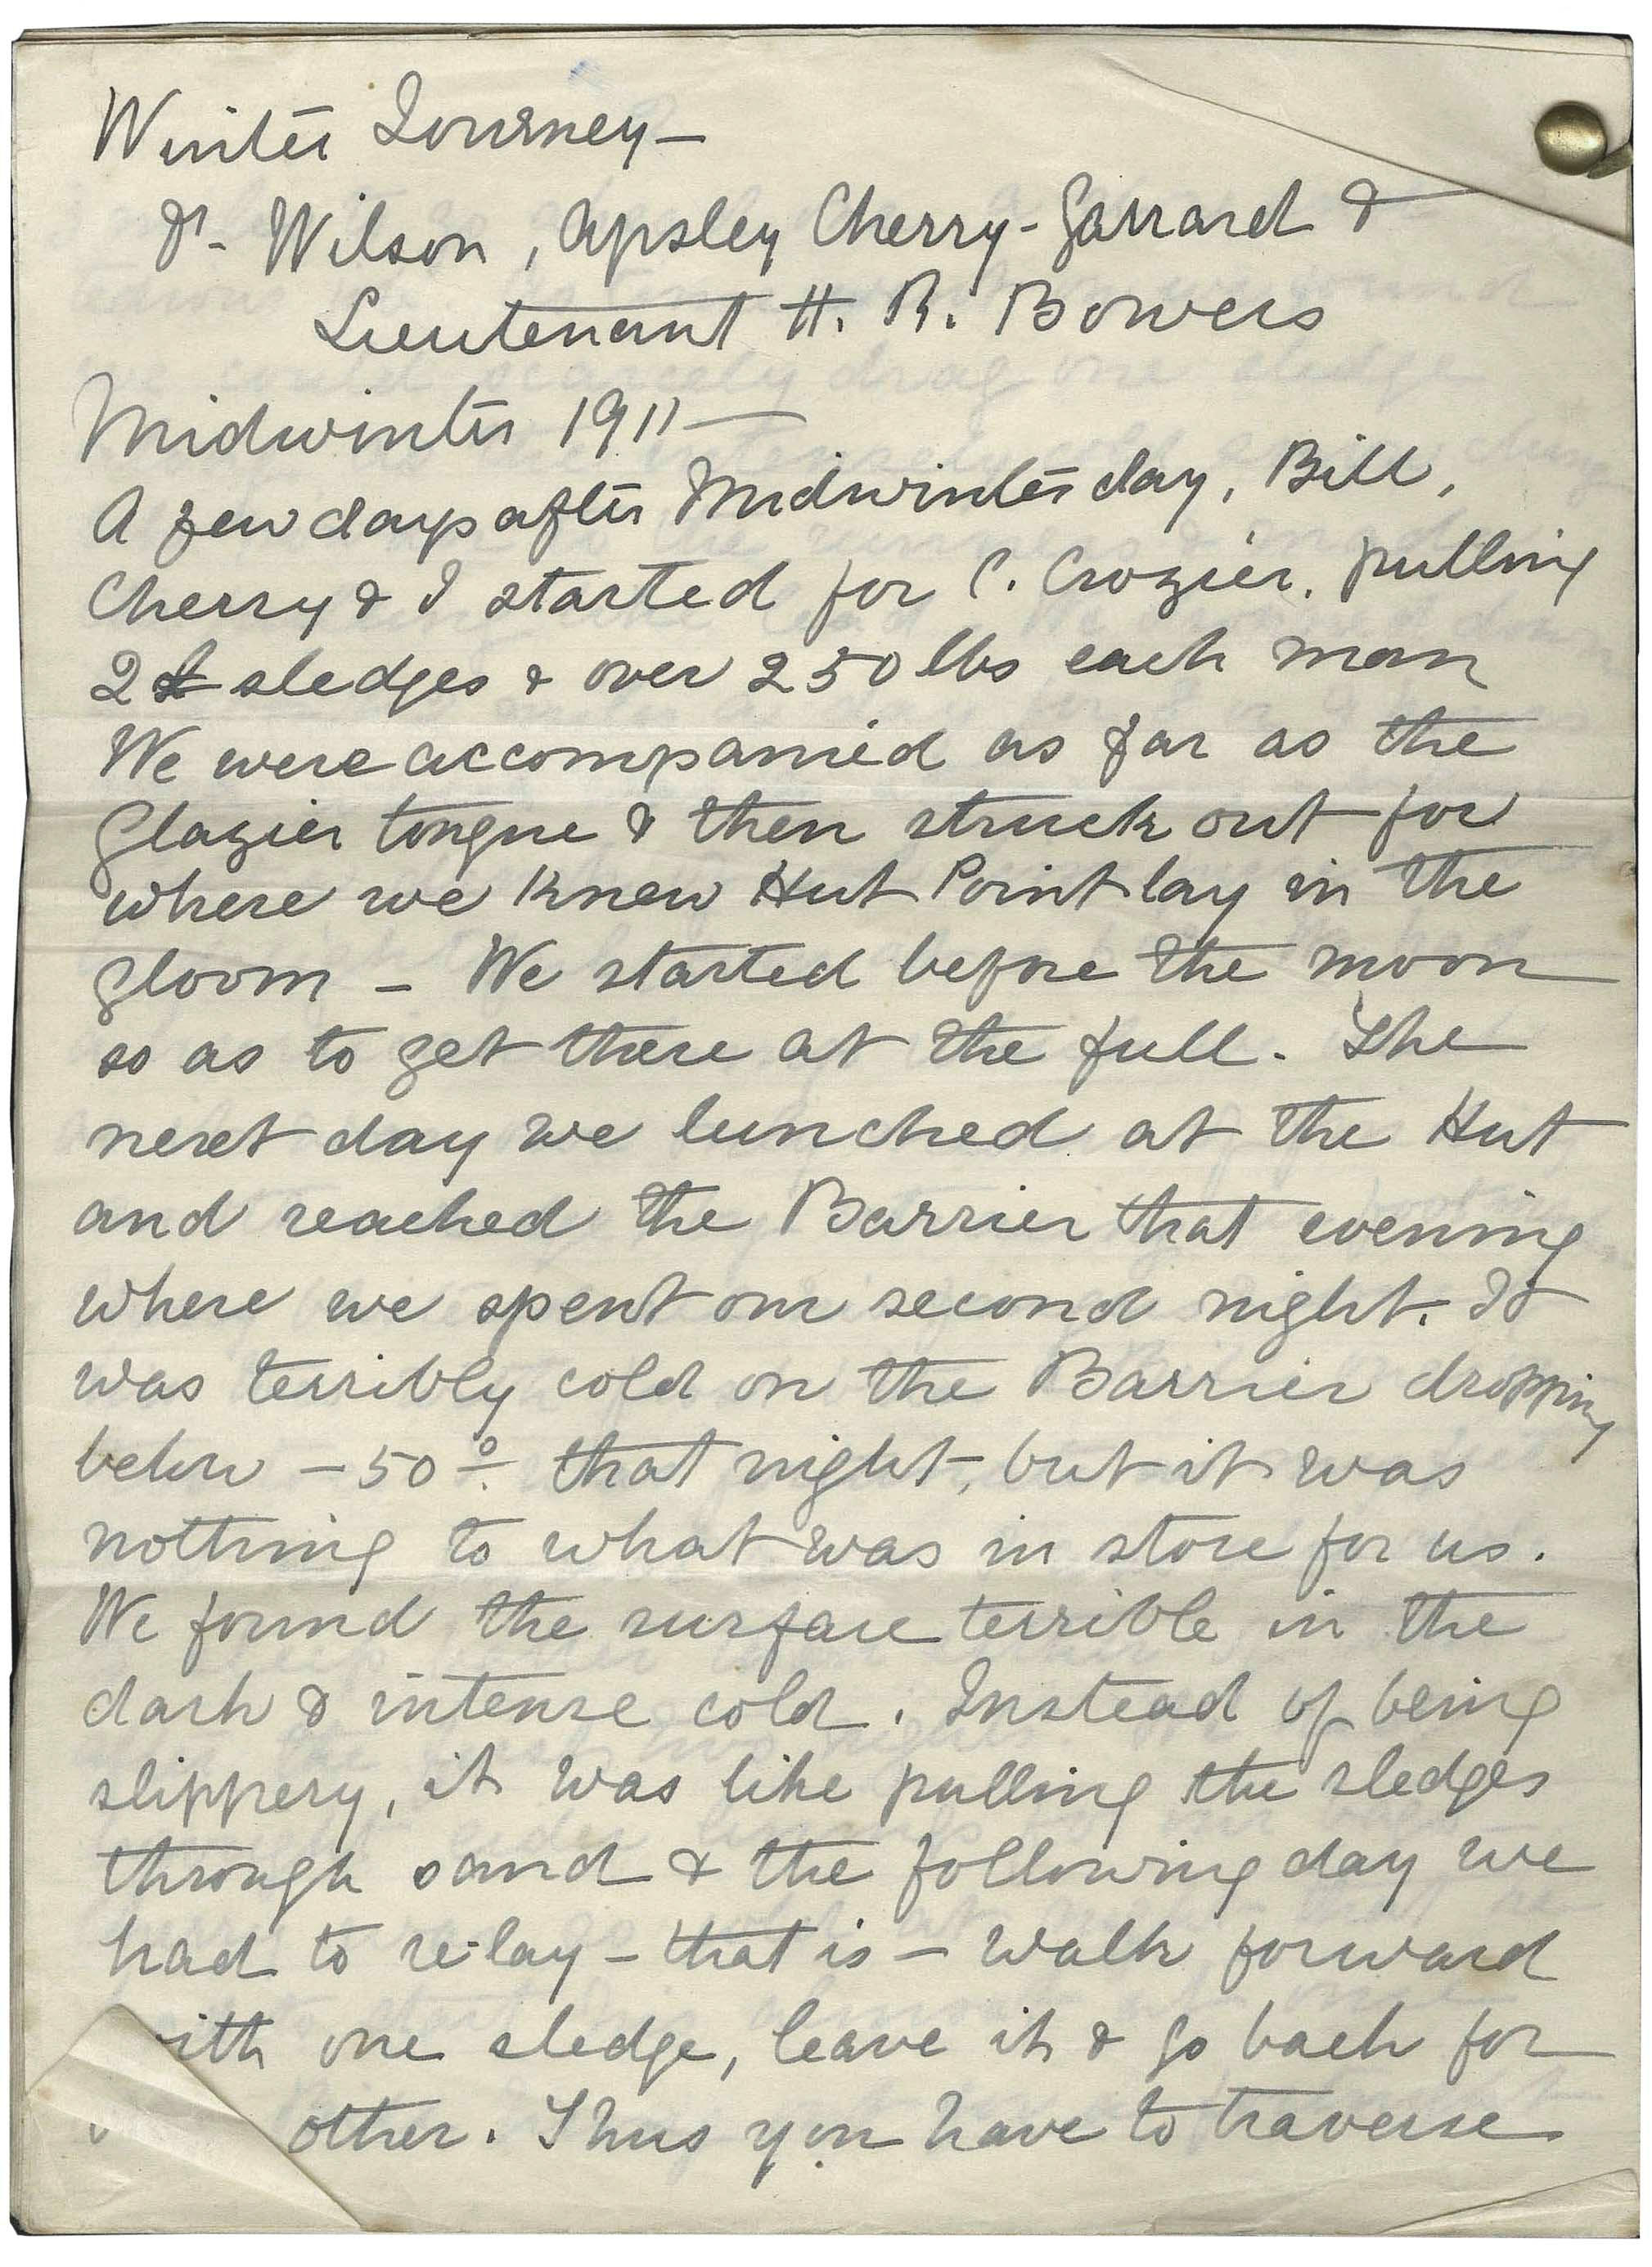 Winter Journey –
Dr. Wilson, Apsley Cherry-Garrard &
Lieutenant H. R. Bowers
Midwinter 1911 –
A few days after Midwinter day, Bill,
Cherry & I started for C. Crozier. pulling
2 sledges & over 250 lbs each man
We were accompanied as far as the
Glazier tongue & then struck out for
where we knew Hut Point lay in the
gloom – We started before the moon
so as to get there at the full. The
next day we lunched at the Hut
and reached the Barrier that evening
where we spent our second night. It
was terribly cold on the Barrier dropping
below – 50°. that night, but it was
nothing to what was in store for us.
We found the surface terrible in the
dark & intense cold. Instead of being
slippery, it was like pulling the sledges
through sand & the following day we
had to re-lay – that is – walk forward
with one sledge, leave it & go back for
other. Thus you have to traverse